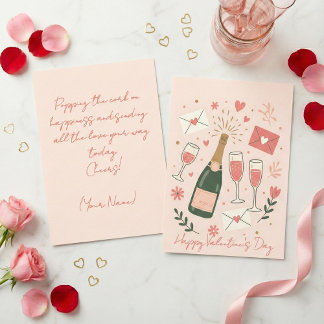 Popping the cork on
happiness and sending
all the love your way
today.
Cheers!
(Your Name)
Happy Valentine's Day